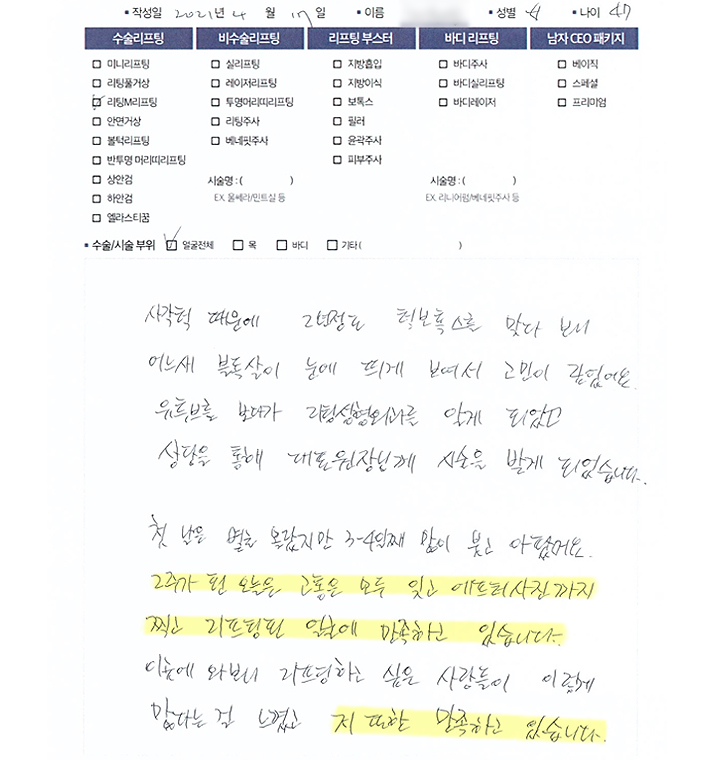 작성일 2021년 4 월 17 일 이름 성별 여 나이 47
수술리프팅 비수술리프팅 리프팅 부스터 바디 리프팅 남자 CEO 패키지
미니리프팅 실리프팅 지방흡입 바디주사 베이직
리팅풀거상 레이저리프팅 지방이식 바디실리프팅 스페셜
리팅M리프팅 투명머리띠리프팅 보톡스 바디레이저 프리미엄
안면거상 리팅주사 필러
볼턱리프팅 베네핏주사 윤곽주사
반투명 머리띠리프팅 피부주사
상안검 시술명 : ( ) 시술명 : ( )
하안검 EX. 울쎄라/민트실 등 EX. 리니어펌/베네핏주사 등
엘라스티꿈
수술/시술 부위 얼굴전체 목 바디 기타 ( )
사각턱 때문에 2년정도 턱보톡스를 맞다 보니
어느새 불독살이 눈에 띄게 보여서 고민이 많았어요.
유튜브를 보다가 리팅성형외과를 알게 되었고
상담을 통해 대표원장님께 시술을 받게 되었습니다.
첫 날은 별로 몰랐지만 3-4일째 많이 붓고 아팠어요.
2주가 된 오늘은 고통은 모두 잊고 에프터사진까지
찍고 리프팅된 얼굴에 만족하고 있습니다.
이곳에 와보니 리프팅하고 싶은 사람들이 이렇게
많다는걸 느꼈고 저 또한 만족하고 있습니다.